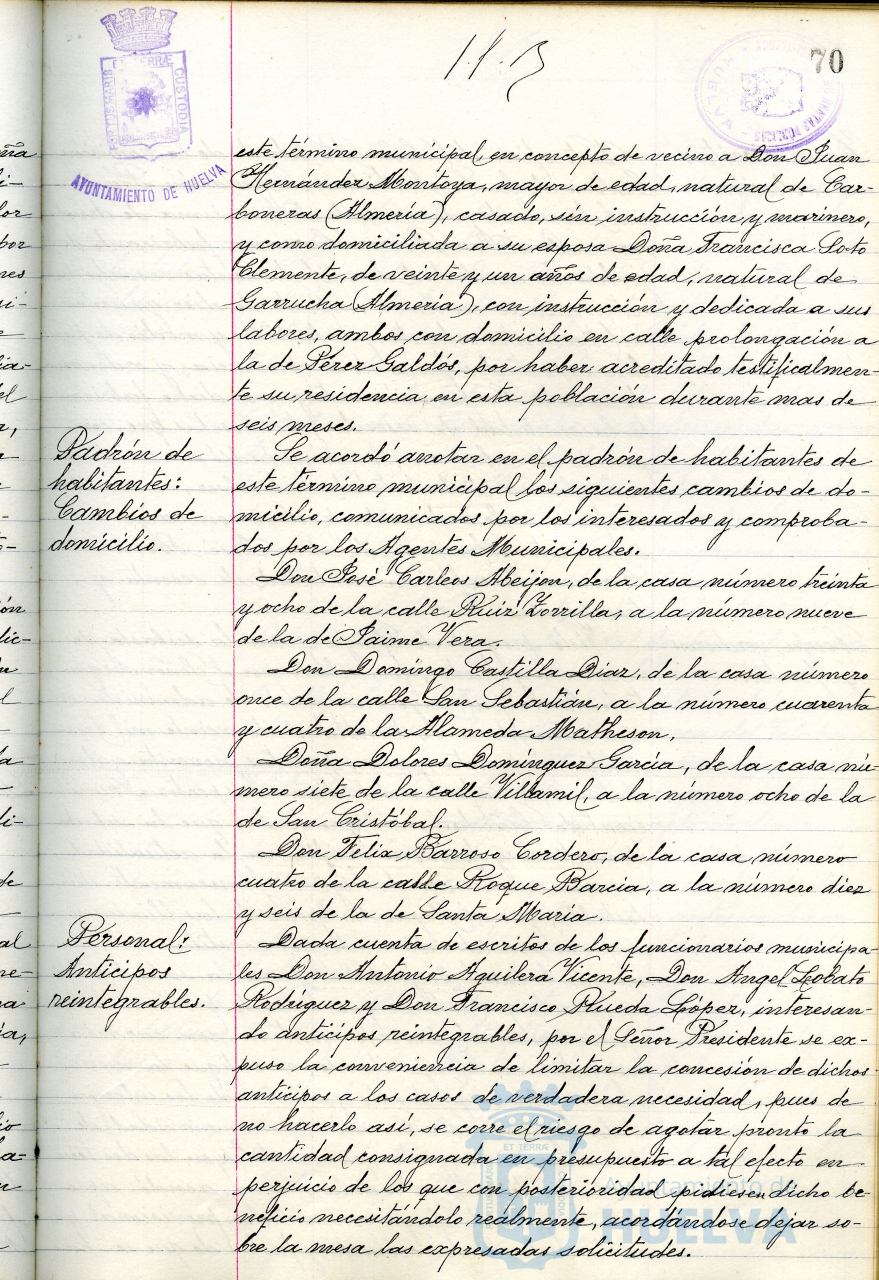 70
ET TERRÆ
CUSTODIA
AYUNTAMIENTO DE HUELVA
HUELVA
este término municipal, en concepto de vecino a Don Juan
Hernández Montoya, mayor de edad, natural de Car-
boneras (Almería), casado, sin instrucción y marinero,
y como domiciliada a su esposa Doña Francisca Soto
Clemente, de veinte y un años de edad, natural de
Garrucha (Almería), con instrucción y dedicada a sus
labores, ambos con domicilio en calle prolongación a
la de Pérez Galdós, por haber acreditado testificalmen-
te su residencia en esta población durante mas de
seis meses.
Padrón de
habitantes:
Cambios de
domicilio.
Se acordó anotar en el padrón de habitantes de
este término municipal los siguientes cambios de do-
micilio, comunicados por los interesados y comproba-
dos por los Agentes Municipales.
Don José Carleos Abeijon, de la casa número treinta
y ocho de la calle Ruiz Zorrilla, a la número nueve
de la de Jaime Vera.
Don Domingo Castilla Diaz, de la casa número
once de la calle San Sebastián, a la número cuarenta
y cuatro de la Alameda Matheson.
Doña Dolores Domínguez García, de la casa nú-
mero siete de la calle Villamil, a la número ocho de la
de San Cristóbal.
Don Felix Barroso Cordero, de la casa número
cuatro de la calle Roque Barcia, a la número diez
y seis de la de Santa María.
Personal:
Anticipos
reintegrables.
Dada cuenta de escritos de los funcionarios municipa-
les Don Antonio Aguilera Vicente, Don Angel Lobato
Rodríguez y Don Francisco Rueda López, interesan-
do anticipos reintegrables, por el Señor Presidente se ex-
puso la conveniencia de limitar la concesión de dichos
anticipos a los casos de verdadera necesidad, pues de
no hacerlo así, se corre el riesgo de agotar pronto la
cantidad consignada en presupuesto a tal efecto en
perjuicio de los que con posterioridad pidiesen dicho be-
neficio necesitándolo realmente, acordándose dejar so-
bre la mesa las expresadas solicitudes.
ET TERRÆ
Ayuntamiento de
HUELVA